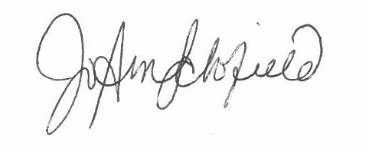 JoAnn Schofield